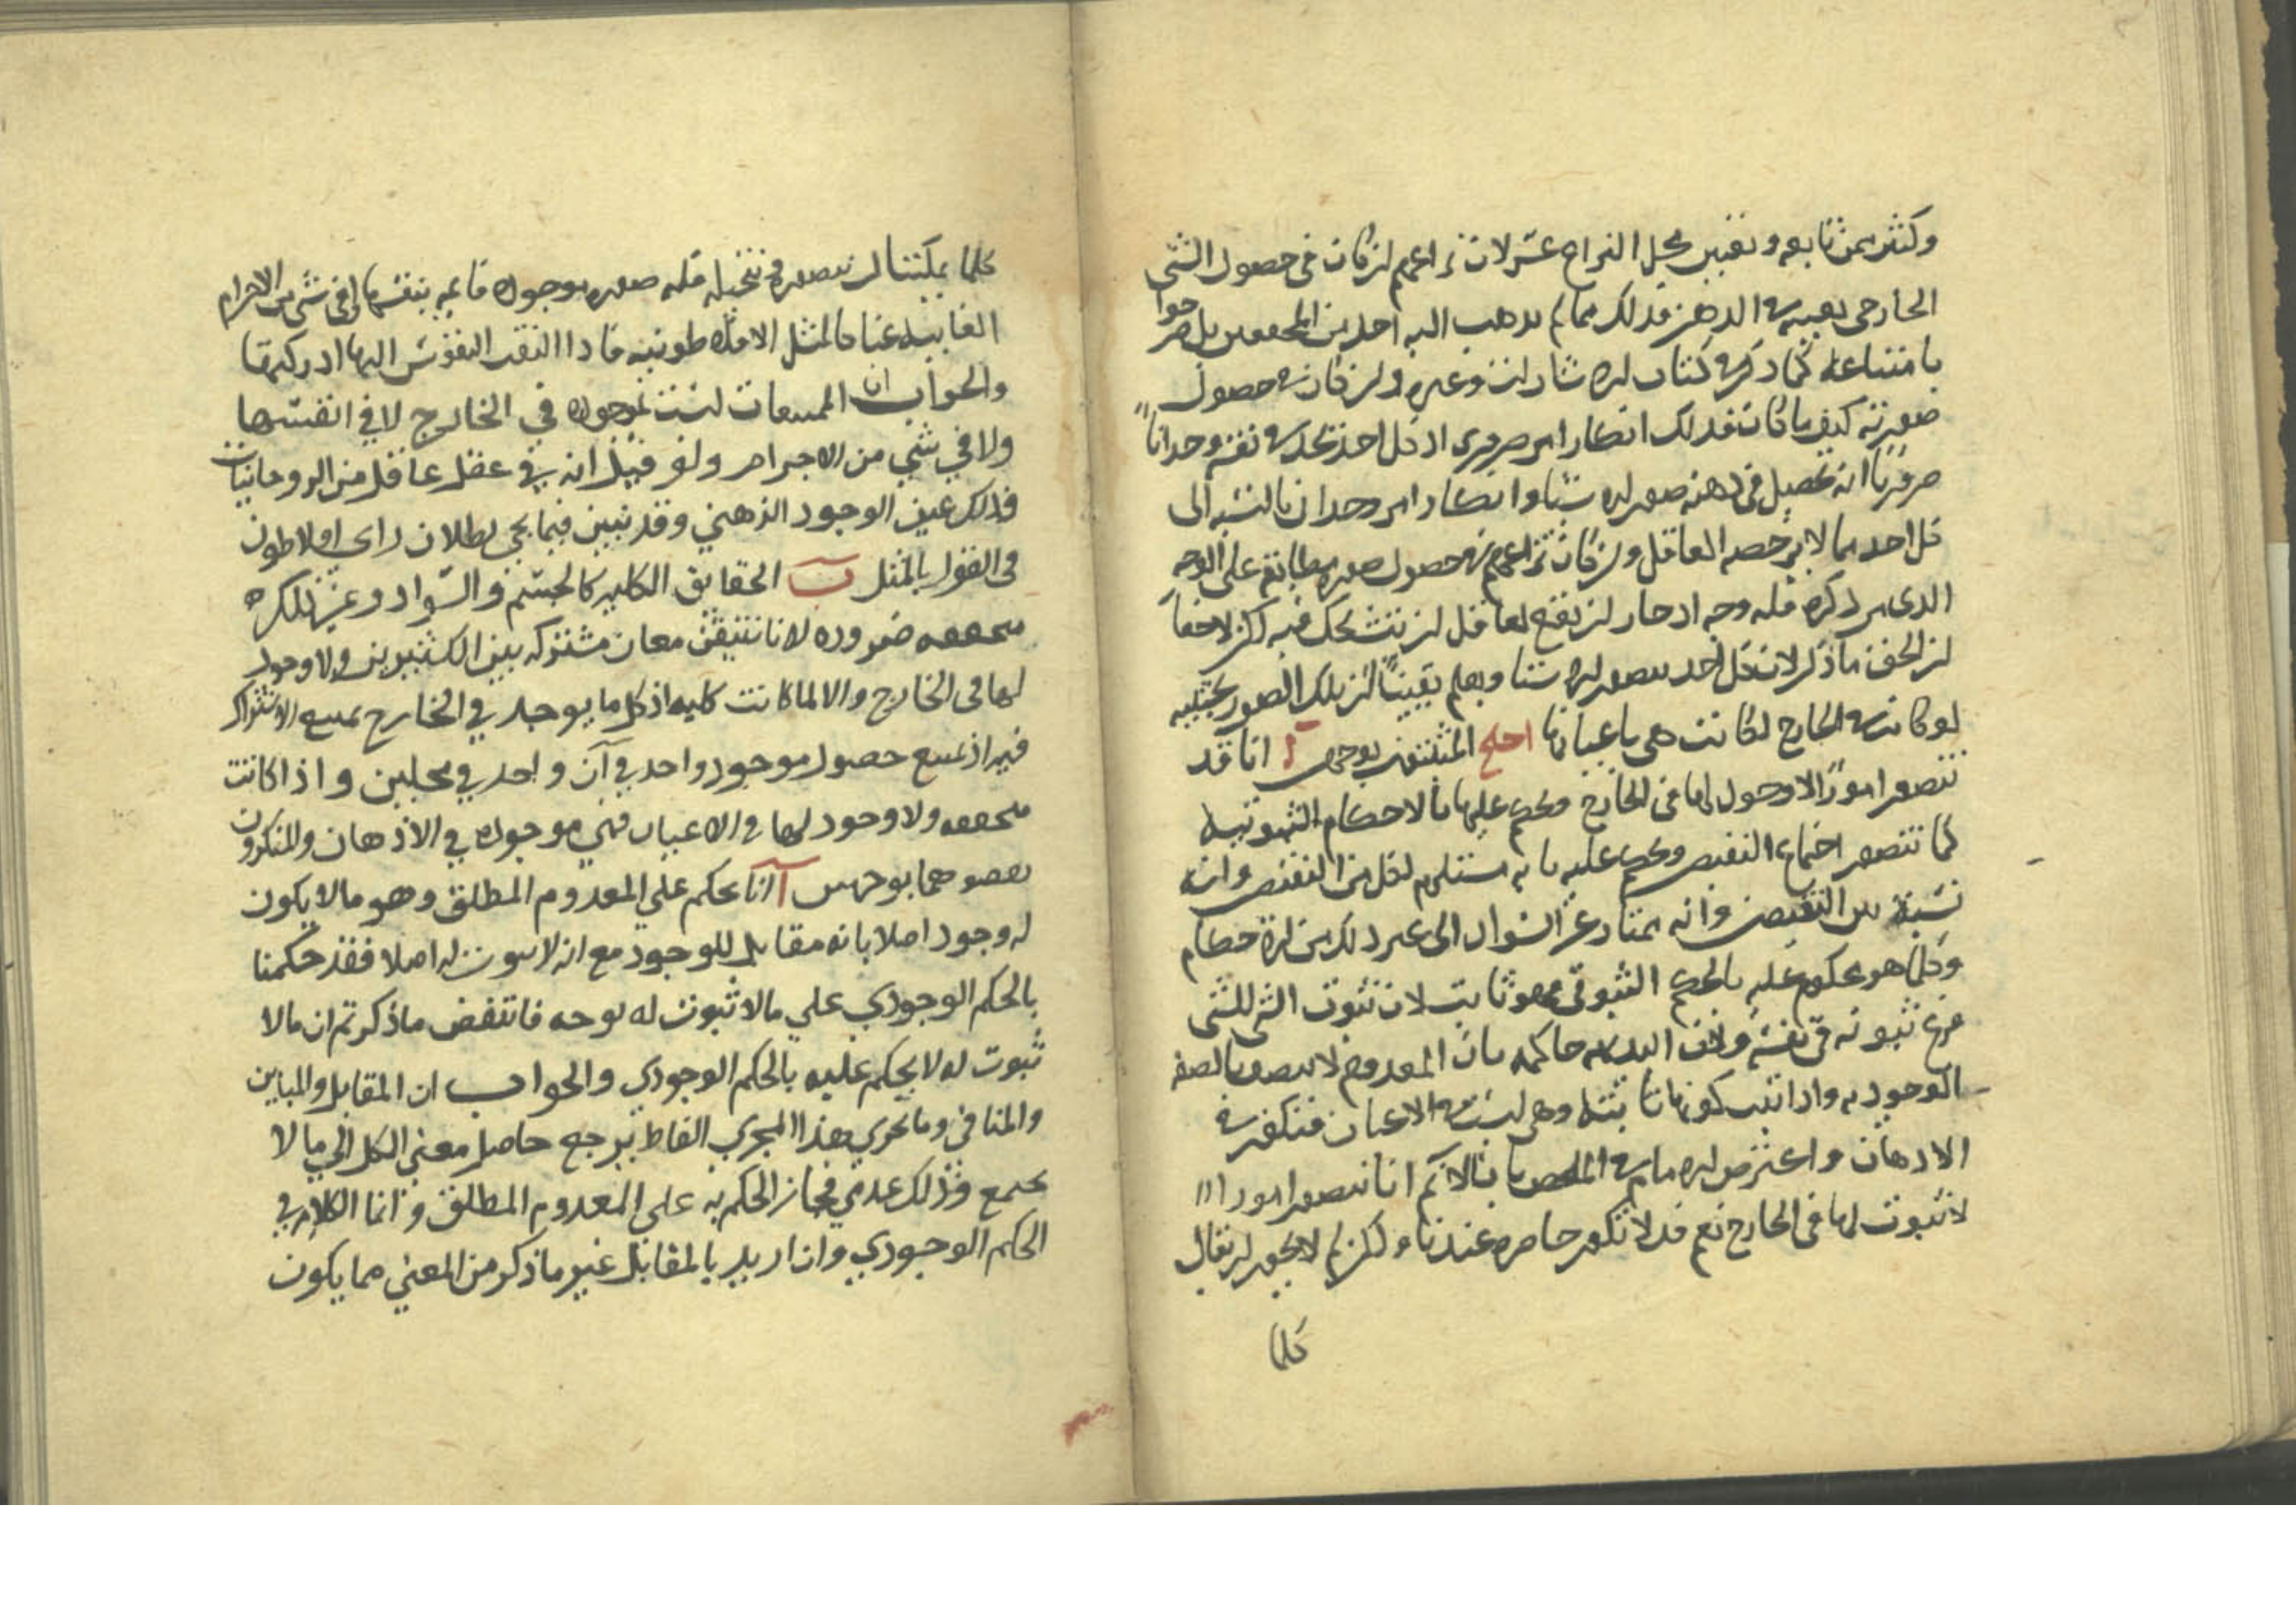 وكثير ممن تابعه وتعيين محل النزاع عسر لان نزاعهم ان كان في حصول الشي
الخارجي بعينه في الذهن فذلك مما لم يذهب اليه احد من المحققين بل صرحوا
بامتناعه كما ذكر في كتاب الاشارات وغيره وان كان في حصول
صورته كيف ما كانت فذلك انكار امر ضروري اذ كل احد يجد في نفسه وجدانا
ضروريا انه يحصل في ذهنه صور الاشياء وانكار امر وجداني بالنسبة الى
كل احد مما لا يرخصه العاقل وان كان نزاعهم في حصول صورة مطابقة على الوجه
الذي مر ذكره فله وجه اذ جاز ان يقع لعاقل ان يتشكك فيه لكن لا خفا
ان الحق ما ذكر لان كل احد يتصور الاشيا ويعلم يقينا ان تلك الصور بحيث
لو كانت في الخارج لكانت هي باعيانها احتج المثبتون بوجهين آ انا قد
نتصور امورا لا وجود لها في الخارج ونحكم عليها بالاحكام الثبوتية
كما نتصور اجتماع النقيضين ونحكم عليه بانه مستلزم لكل من النقيضين وانه
نسبة بين النقيضين وانه يمتاز عن السواد الى غير ذلك من الاحكام
وكلما هو محكوم عليه بالحكم الثبوتي فهو ثابت لان ثبوت الشي للشي
فرع ثبوته في نفسه ولان البديهة حاكمة بان المعدوم لا يتصف بالصفة
الوجودية واذا ثبت كونها ثابتة وهي ليست في الاعيان فتكون في
الاذهان واعترض الامام في الملخص بانا لانم انا نتصور امورا
لا ثبوت لها في الخارج نعم قد لا تكون حاضرة عندنا ولكن لم لا يجوز ان يقال
كلما
كلما يمكننا ان نتصوره ونتخيله فله صورة موجودة قائمة بنفسها او في شي من الاجرام
الغايبة عنا كالمثل الافلاطونية فاذا التفت النفوس اليها ادركتها
والجواب ان الممتنعات ليست بموجودة في الخارج لا في انفسها
ولا في شي من الاجرام ولو قيل انه في عقل عاقل من الروحانيات
فذلك عين الوجود الذهني وقد نبين فيما يجي بطلان راي افلاطون
في القول بالمثل ب الحقايق الكلية كالجسم والسواد وغير ذلك
متحققة ضرورة لانا نتيقن معان مشتركة بين الكثيرين ولا وجود
لها في الخارج والا لما كانت كلية اذ كل ما يوجد في الخارج يمتنع الاشتراك
فيه اذ يمتنع حصول موجود واحد في آن واحد في محلين واذا كانت
متحققة ولا وجود لها في الاعيان فهي موجودة في الاذهان والمنكرون
نقضوهما بوجهين آ انا نحكم علي المعدوم المطلق وهو ما لا يكون
له وجود اصلا بانه مقابل للوجود مع انه لا ثبوت له اصلا فقد حكمنا
بالحكم الوجودي علي ما لا ثبوت له بوجه فانتقض ما ذكرتم ان ما لا
ثبوت له لا يحكم عليه بالحكم الوجودي والجواب ان المقابل والمباين
والمنافي وما يجري هذا المجري الفاظ يرجع حاصل معني الكل الي ما لا
يجتمع وذلك عدمي فجاز الحكم به علي المعدوم المطلق وانما الكلام في
الحكم الوجودي وان اريد بالمقابل غير ما ذكر من المعني مما يكون